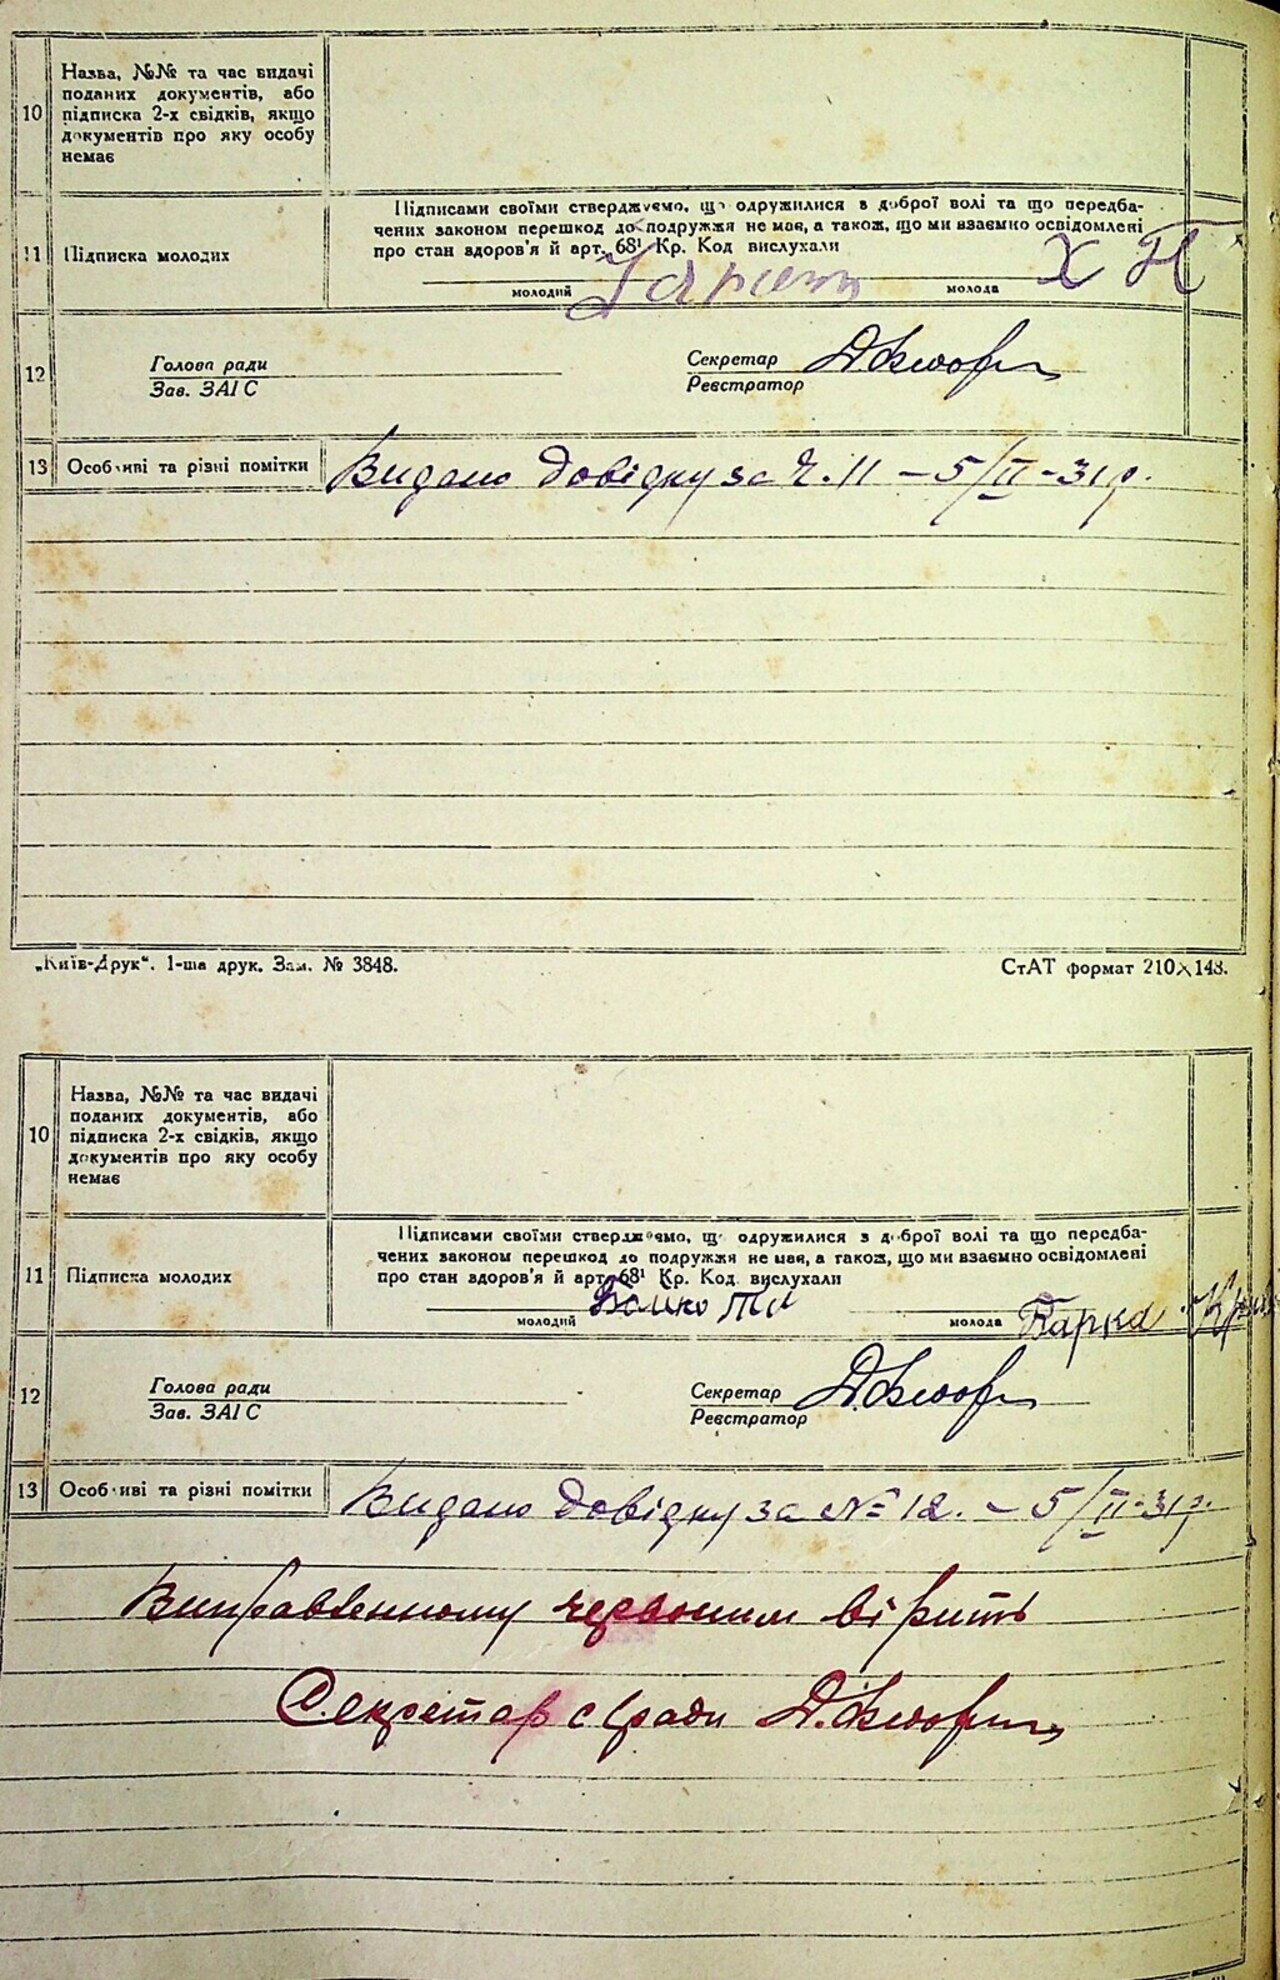 10
Назва, №№ та час видачі
поданих документів, або
підписка 2-х свідків, якщо
документів про яку особу
немає
11
Підписка молодих
Підписами своїми стверджуємо, що одружилися з доброї волі та що передба-
чених законом перешкод до подружжя не має, а також, що ми взаємно освідомлені
про стан здоров'я й арт. 68¹ Кр. Код вислухали
молодий
молода Х П
12
Голова ради
Зав. ЗАГС
Секретар
Реєстратор
13 Особливі та різні помітки Видано довідку за Ч. 11 – 5/II – 31 р.
„Київ-Друк". 1-ша друк. Зам. № 3848.
СтАТ формат 210×148.
10
Назва, №№ та час видачі
поданих документів, або
підписка 2-х свідків, якщо
документів про яку особу
немає
11
Підписка молодих
Підписами своїми стверджуємо, що одружилися з доброї волі та що передба-
чених законом перешкод до подружжя не має, а також, що ми взаємно освідомлені
про стан здоров'я й арт. 68¹ Кр. Код вислухали
молодий
молода
12
Голова ради
Зав. ЗАГС
Секретар
Реєстратор
13 Особливі та різні помітки Видано довідку за № 12. – 5/II – 31 р.
Виправленному червоним вірить
Секретар с/ради